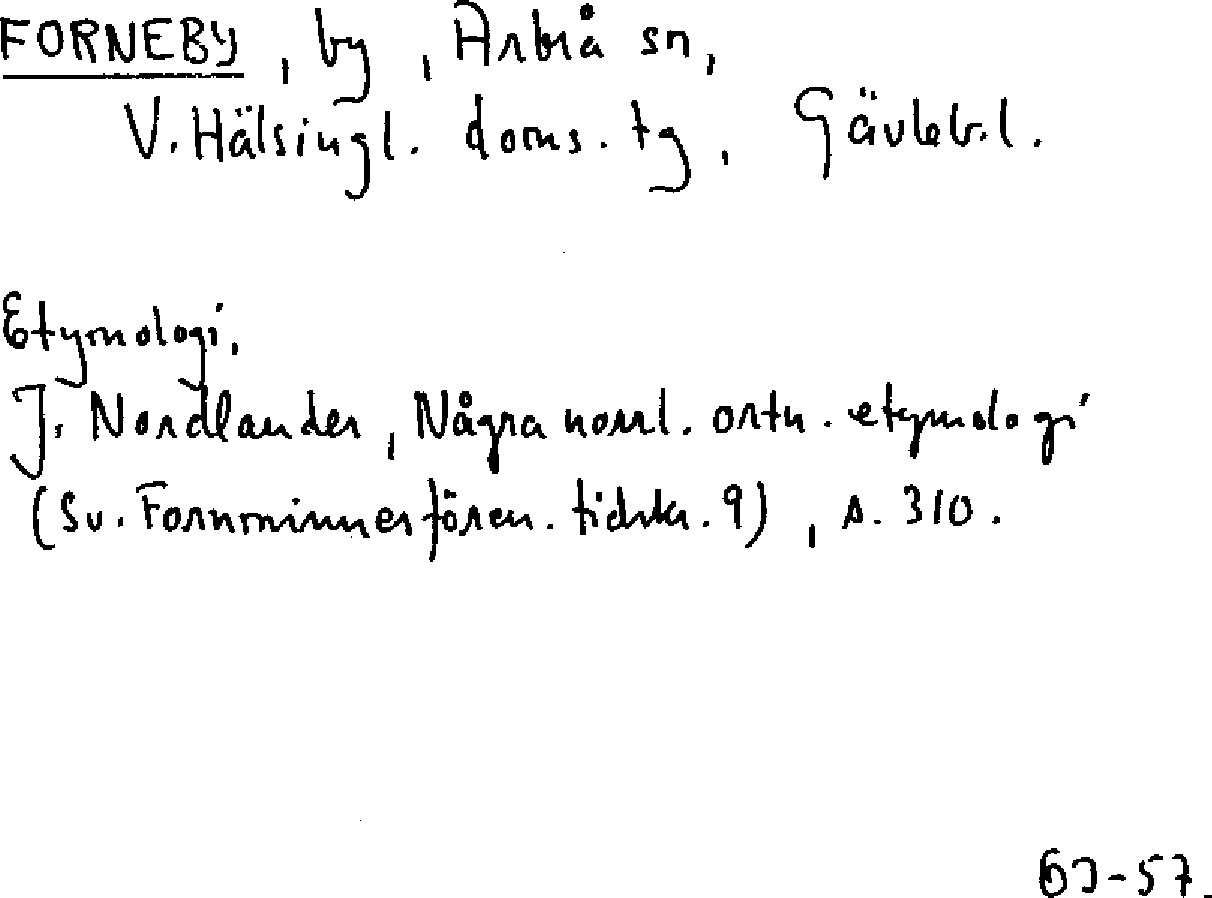 FORNEBY, by, Arbrå sn,
V. Hälsingl. doms. tg, Gävleb. l.
Etymologi.
J. Nordlander, Några norrl. ortn. etymologi
(Sv. Fornminnesfören. tidskr. 9), s. 310.
-57.